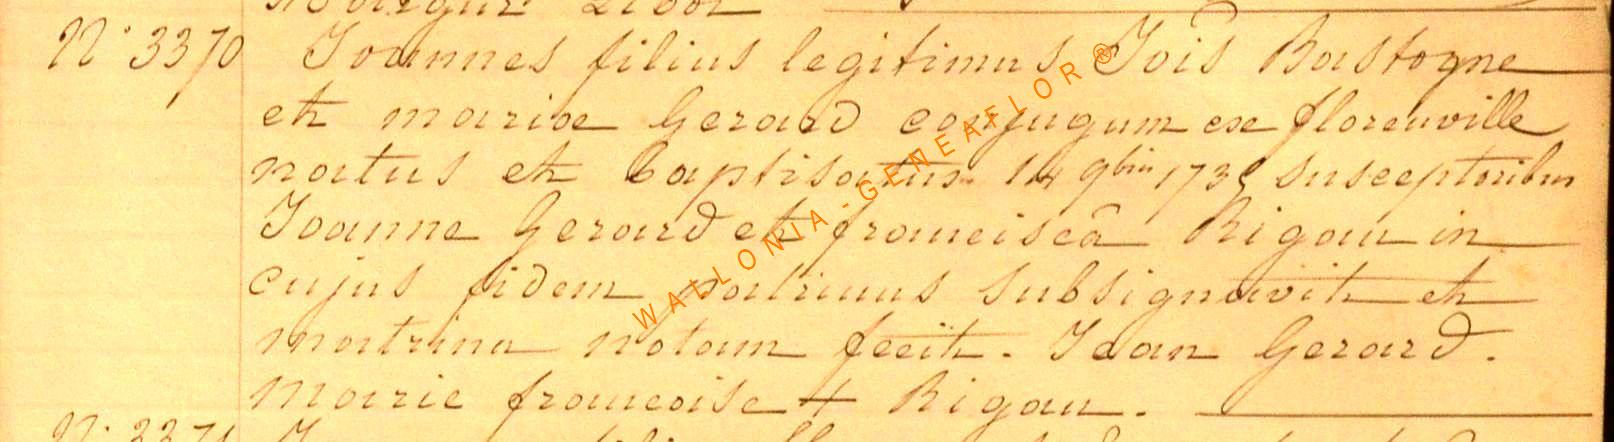 N° 3370 Joannes filius legitimus Jois Bastogne
et mariæ Gerard conjugum ex florenville
natus et baptisatus 14 9bris 1735 susceptoribus
Joanne Gerard et francisca Rigau in
cujus fidem patrinus subsignavit et
matrina notam fecit. Jean Gerard.
Marie francoise + Rigau.
WALLONIA-GENEAFLOR ®